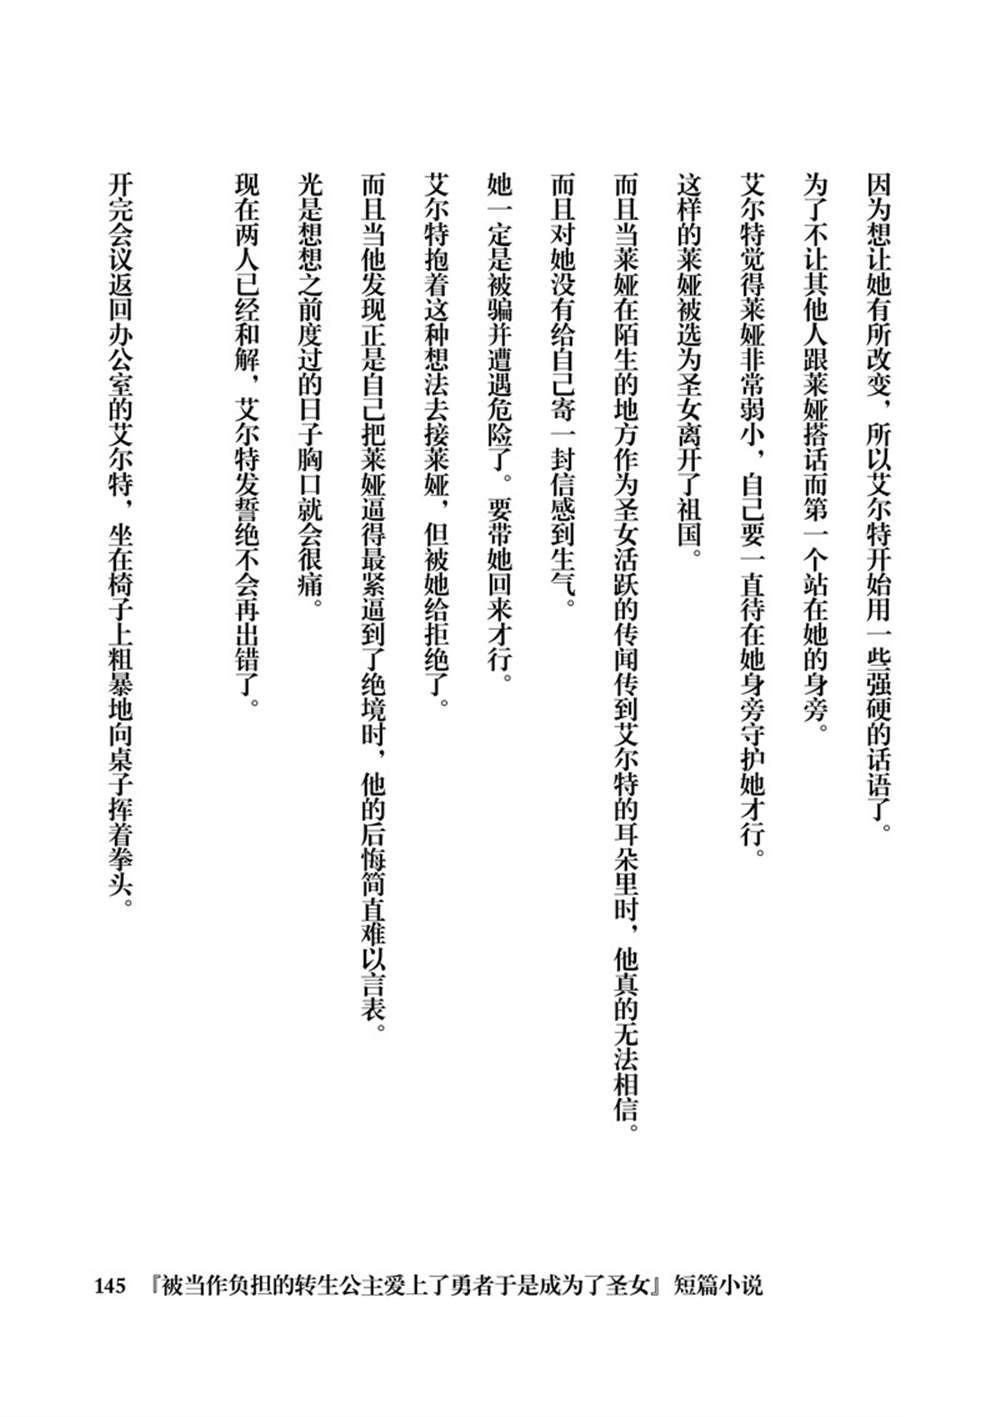 因为想让她有所改变，所以艾尔特开始用一些强硬的话语了。
为了不让其他人跟莱娅搭话而第一个站在她的身旁。
艾尔特觉得莱娅非常弱小，自己要一直待在她身旁守护她才行。
这样的莱娅被选为圣女离开了祖国。
而且当莱娅在陌生的地方作为圣女活跃的传闻传到艾尔特的耳朵里时，他真的无法相信。
而且对她没有给自己寄一封信感到生气。
她一定是被骗并遭遇危险了。要带她回来才行。
艾尔特抱着这种想法去接莱娅，但被她给拒绝了。
而且当他发现正是自己把莱娅逼得最紧逼到了绝境时，他的后悔简直难以言表。
光是想想之前度过的日子胸口就会很痛。
现在两人已经和解，艾尔特发誓绝不会再出错了。
开完会议返回办公室的艾尔特，坐在椅子上粗暴地向桌子挥着拳头。
145 『被当作负担的转生公主爱上了勇者于是成为了圣女』短篇小说